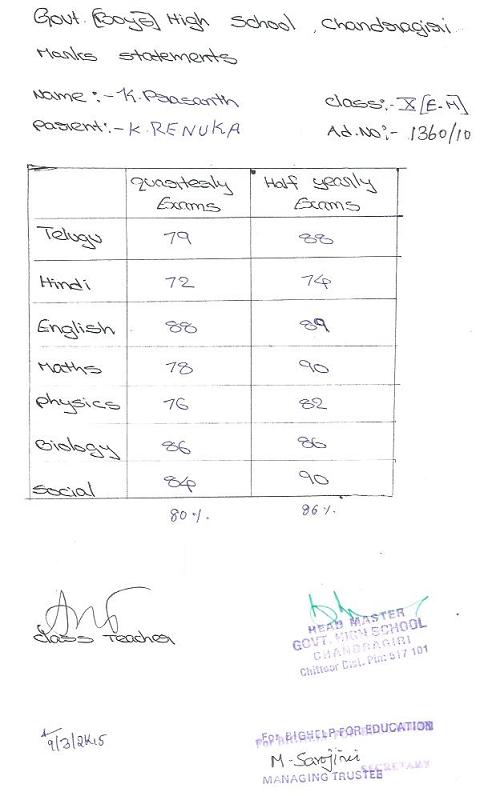 Govt. [Boys] High School, Chandragiri
Marks statements
Name:- K. Prasanth class:- X [E-M]
Parient:- K. RENUKA Ad.No:- 1360/10
Quarterly Exams Half yearly Exams
Telugu 79 88
Hindi 72 74
English 88 89
Maths 78 90
Physics 76 82
Biology 86 86
Social 84 90
80%. 86%.
Class Teacher
HEAD MASTER
GOVT. HIGH SCHOOL
CHANDRAGIRI
Chittoor Dist. Pin: 517 101
9/3/2K15
For BIGHELP FOR EDUCATION
M. Sarojini
SECRETARY
MANAGING TRUSTEE